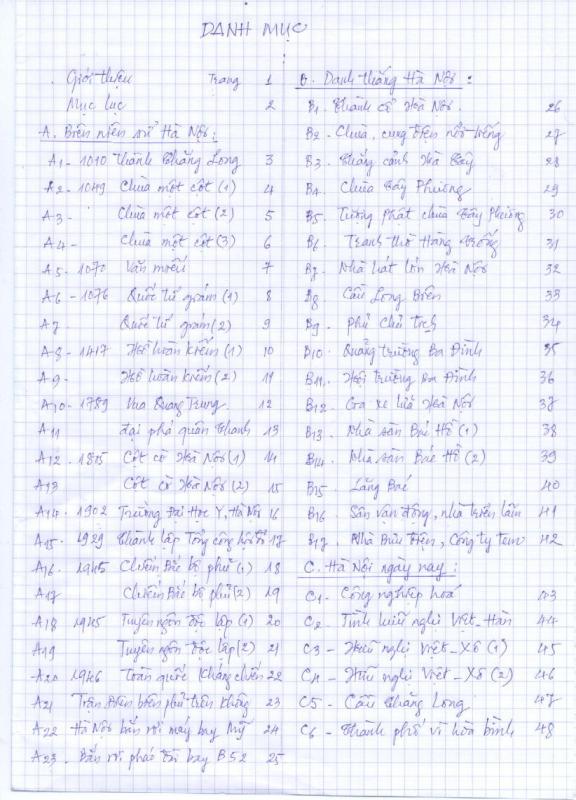 DANH MỤC
Giới thiệu Trang 1
Mục lục 2
A. Biên niên sử Hà Nội:
A1 - 1010 Thành Thăng Long 3
A2 - 1049 Chùa một cột (1) 4
A3 - Chùa một cột (2) 5
A4 - Chùa một cột (3) 6
A5 - 1070 Văn miếu 7
A6 - 1076 Quốc tử giám (1) 8
A7 Quốc tử giám (2) 9
A8 - 1417 Hồ hoàn kiếm (1) 10
A9 - Hồ hoàn kiếm (2) 11
A10 - 1789 Vua Quang Trung 12
A11 Đại phá quân Thanh 13
A12 - 1805 Cột cờ Hà Nội (1) 14
A13 Cột cờ Hà Nội (2) 15
A14 - 1902 Trường Đại Học Y, Hà Nội 16
A15 - 1929 Thành lập Tổng công hội đỏ 17
A16 - 1945 Chiếm Bắc bộ phủ (1) 18
A17 Chiếm Bắc bộ phủ (2) 19
A18 1945 Tuyên ngôn độc lập (1) 20
A19 Tuyên ngôn độc lập (2) 21
A20 - 1946 Toàn quốc kháng chiến 22
A21 Trận Điện biên phủ trên không 23
A22 Hà Nội bắn rơi máy bay Mỹ 24
A23 - Bắn rơi pháo đài bay B52 25
B. Danh thắng Hà Nội:
B1 - Thành cổ Hà Nội. 26
B2 - Chùa, cung điện nổi tiếng 27
B3 - Thắng cảnh Hà Tây 28
B4 - Chùa Tây Phương 29
B5 - Tượng phật chùa Tây Phương 30
B6 - Tranh thờ Hàng Trống 31
B7 - Nhà hát lớn Hà Nội 32
B8 - Cầu Long Biên 33
B9 - Phủ Chủ tịch 34
B10 - Quảng trường Ba Đình 35
B11 - Hội trường Ba Đình 36
B12 - Ga xe lửa Hà Nội 37
B13 - Nhà sàn Bác Hồ (1) 38
B14 - Nhà sàn Bác Hồ (2) 39
B15 - Lăng Bác 40
B16 - Sân vận động, nhà triển lãm 41
B17 - Nhà Bưu Điện, Công ty tem 42
C. Hà Nội ngày nay:
C1 - Công nghiệp hoá 43
C2 - Tình hữu nghị Việt - Hàn 44
C3 - Hữu nghị Việt - Xô (1) 45
C4 - Hữu nghị Việt - Xô (2) 46
C5 - Cầu Thăng Long 47
C6 - Thành phố vì hòa bình 48